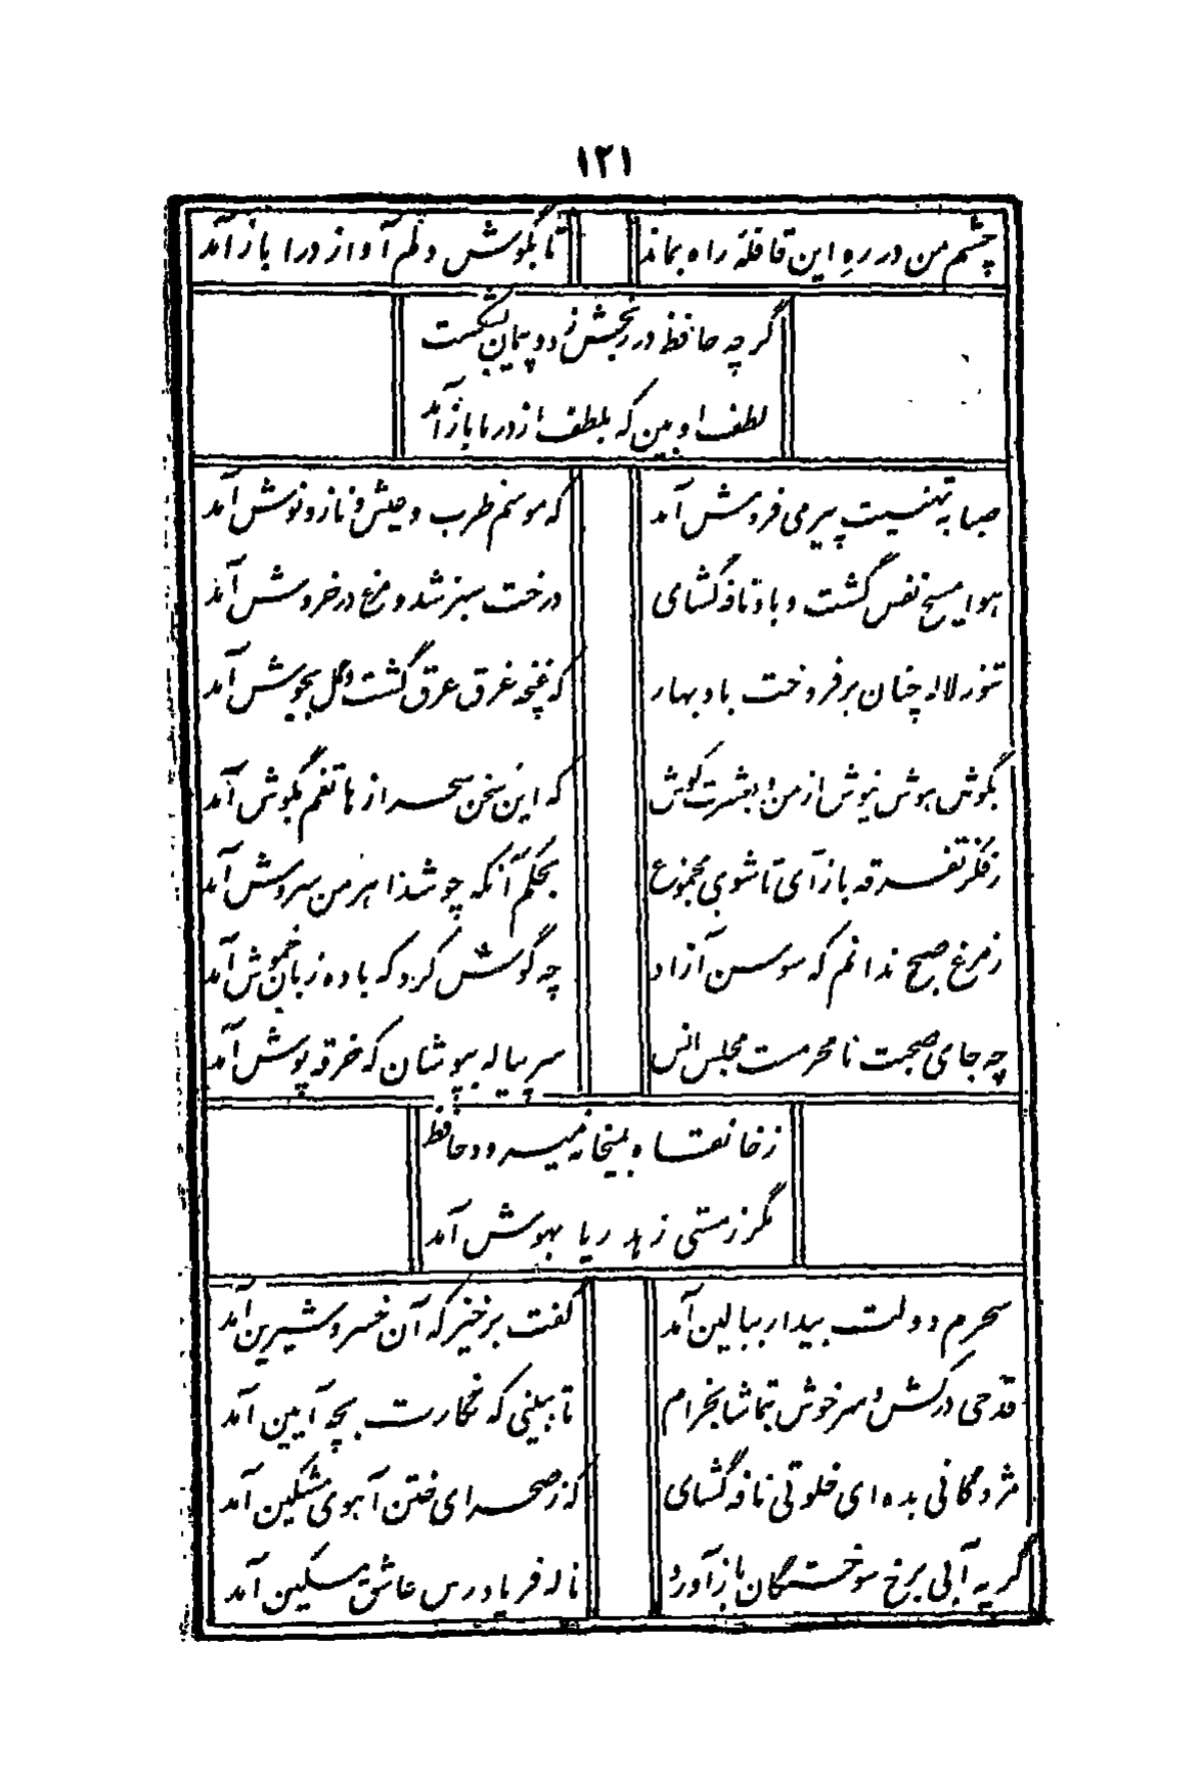 ۱۲۱
چشم من در ره این قافلهٔ راه بماند تا بگوش دلم آواز درا باز آمد
گرچه حافظ در رنجش زد و پیمان بشکست
لطف او بین که بلطف از در ما باز آمد
صبا به تهنیت پیر می فروش آمد که موسم طرب و عیش و ناز و نوش آمد
هوا مسیح نفس گشت و باد نافه گشای درخت سبز شد و مرغ در خروش آمد
تنور لاله چنان بر فروخت باد بهار که غنچه غرق عرق گشت و گل بجوش آمد
بگوش هوش نیوش از من و بعشرت کوش که این سخن سحر از هاتفم بگوش آمد
ز فکر تفرقه باز آی تا شوی مجموع بحکم آنکه چو شد اهرمن سروش آمد
ز مرغ صبح ندانم که سوسن آزاد چه گوش کرد که با ده زبان خموش آمد
چه جای صحبت نامحرمست مجلس انس سر پیاله بپوشان که خرقه پوش آمد
ز خانقاه بمیخانه میرود حافظ
مگر ز مستی زهد ریا بهوش آمد
سحرم دولت بیدار ببالین آمد گفت برخیز که آن خسرو شیرین آمد
قدحی درکش و سرخوش بتماشا بخرام تا ببینی که نگارت بچه آیین آمد
مژدگانی بده ای خلوتی نافه گشای که ز صحرای ختن آهوی مشکین آمد
گریه آبی برخ سوختگان باز آورد ناله فریادرس عاشق مسکین آمد